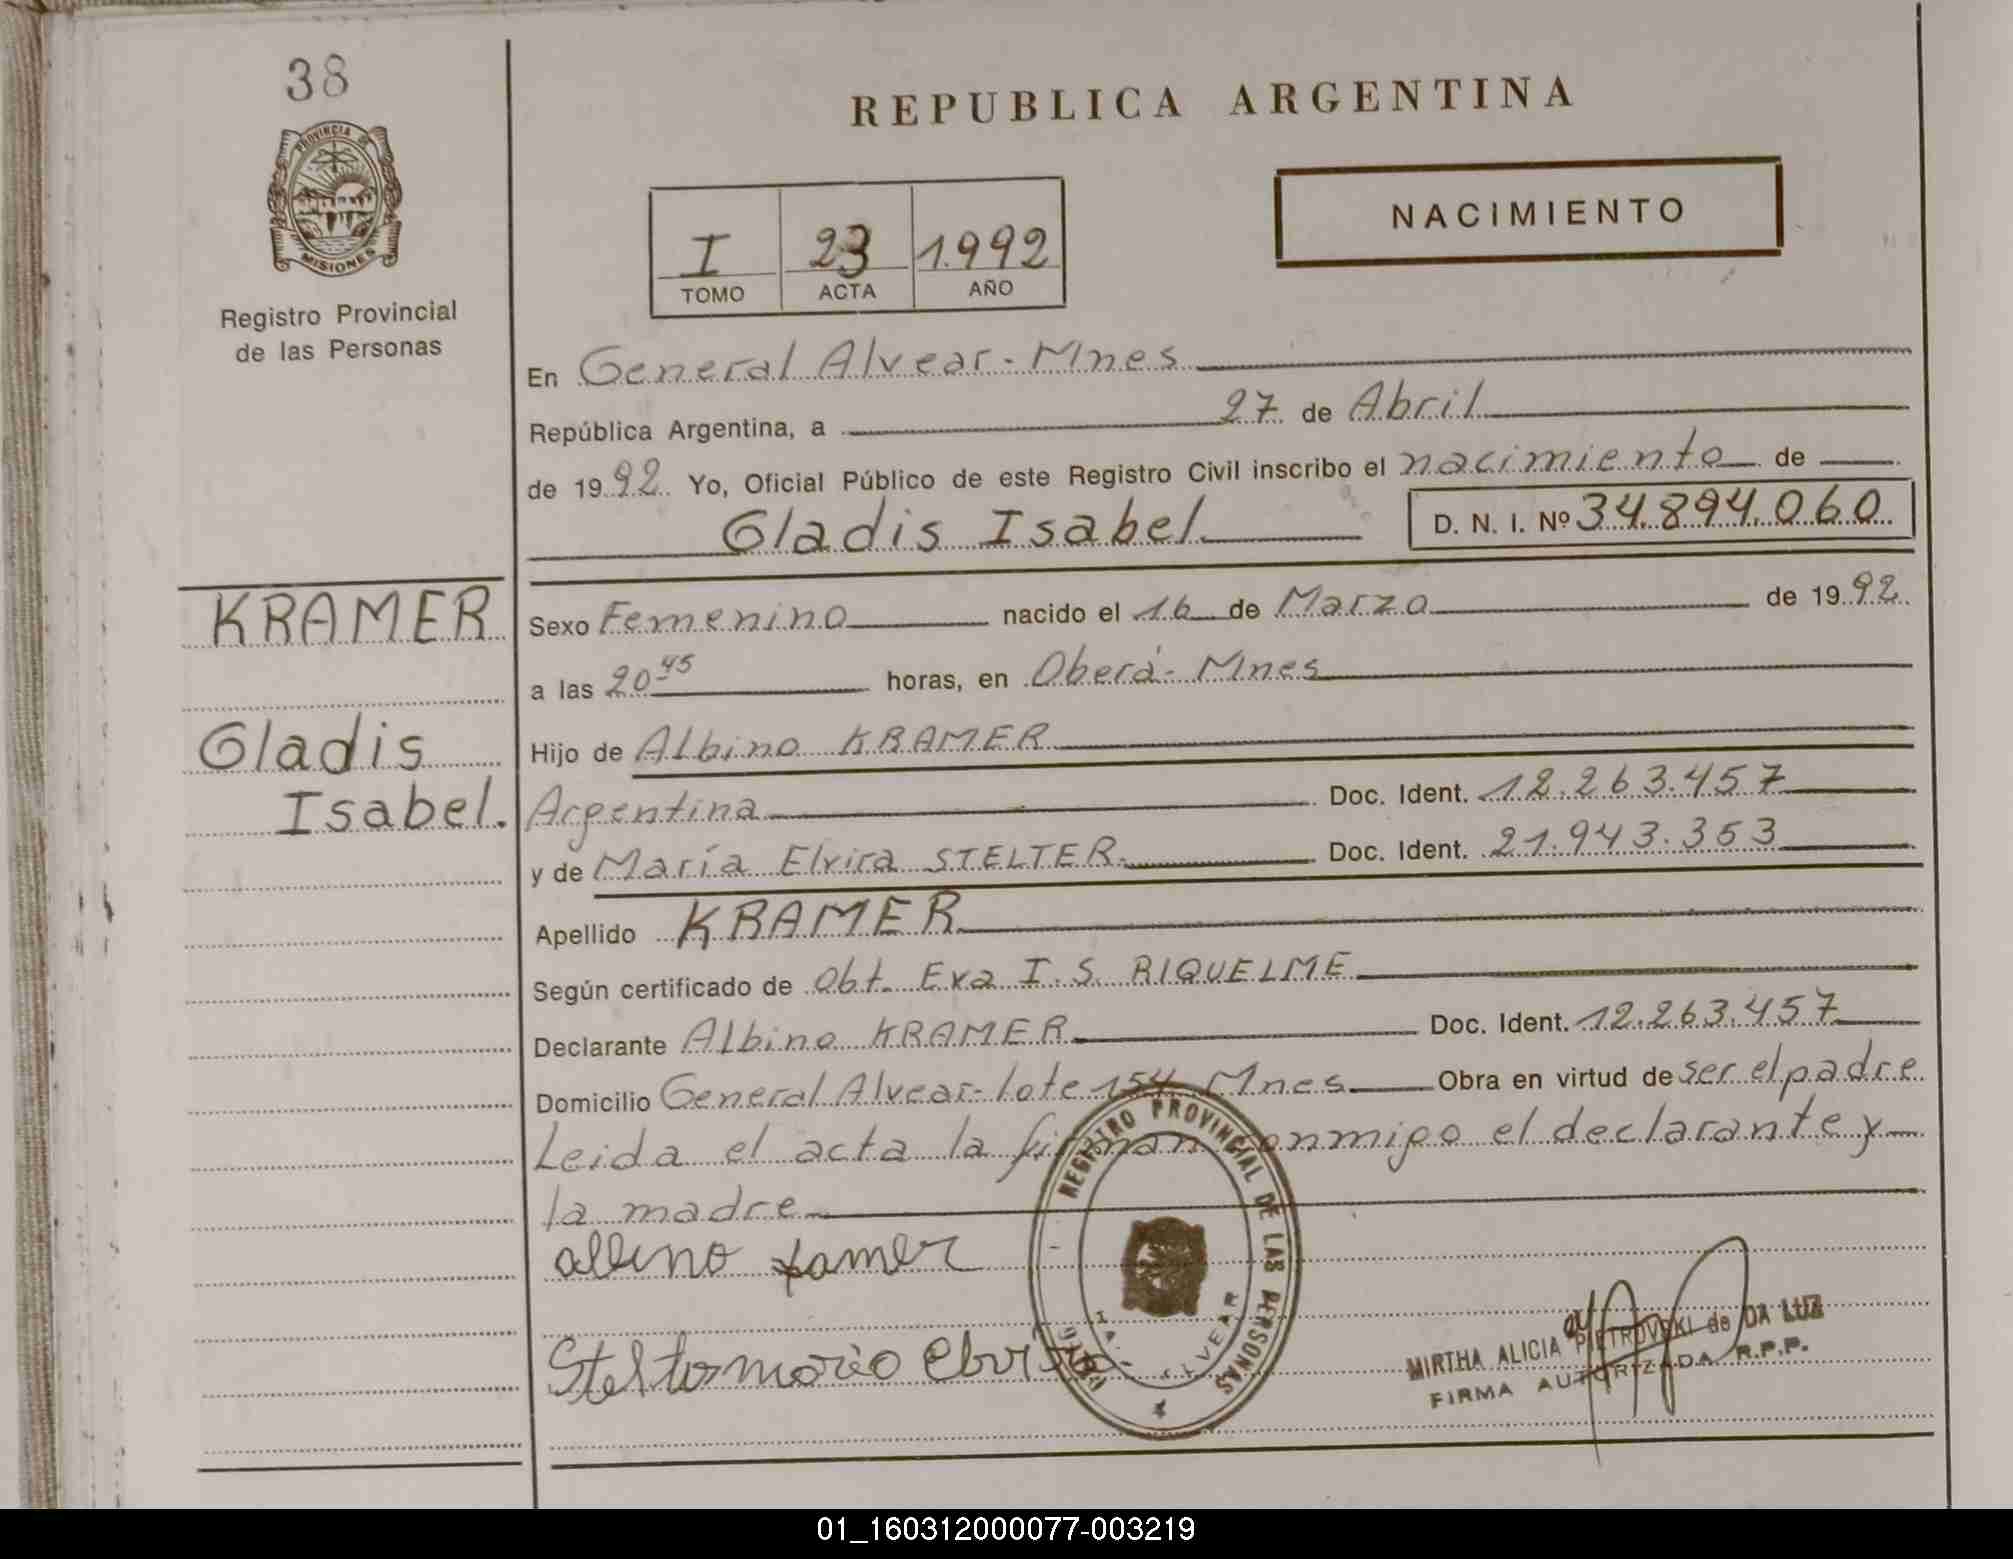 38
PROVINCIA DE
MISIONES
Registro Provincial
de las Personas
REPUBLICA ARGENTINA
I 23 1.992
TOMO ACTA AÑO
NACIMIENTO
En General Alvear - Mnes
República Argentina, a 27 de Abril
de 1992 Yo, Oficial Público de este Registro Civil inscribo el nacimiento de
Gladis Isabel D. N. I. Nº 34.894.060
KRAMER
Gladis
Isabel.
Sexo Femenino nacido el 16 de Marzo de 1992
a las 20 45 horas, en Oberá - Mnes
Hijo de Albino KRAMER
Argentina Doc. Ident. 12.263.457
y de María Elvira STELTER Doc. Ident. 21.943.353
Apellido KRAMER
Según certificado de Obt. Eva I. S. RIQUELME
Declarante Albino KRAMER Doc. Ident. 12.263.457
Domicilio General Alvear - lote 154 Mnes Obra en virtud de ser el padre
Leida el acta la firman conmigo el declarante y
la madre
REGISTRO PROVINCIAL DE LAS PERSONAS
ALVEAR
MIRTHA ALICIA PIETROVSKI de DA LUZ
FIRMA AUTORIZADA R.P.P.
01_160312000077-003219